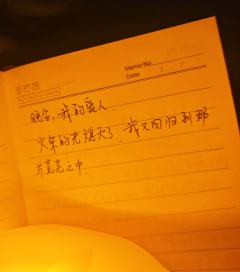 Memo No.
Date / /
晚安，我的爱人．
火柴的光熄灭了，我又回归到那
片荒芜之中